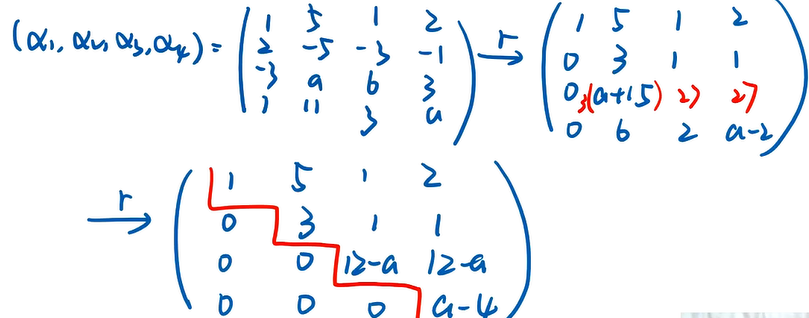 (α₁, α₂, α₃, α₄) = ( 1 5 1 2 ; 2 -5 -3 -1 ; -3 a 6 3 ; 1 11 3 a ) →r ( 1 5 1 2 ; 0 3 1 1 ; 0 3(a+15) 27 27 ; 0 6 2 a-2 )
→r ( 1 5 1 2 ; 0 3 1 1 ; 0 0 12-a 12-a ; 0 0 0 a-4 )